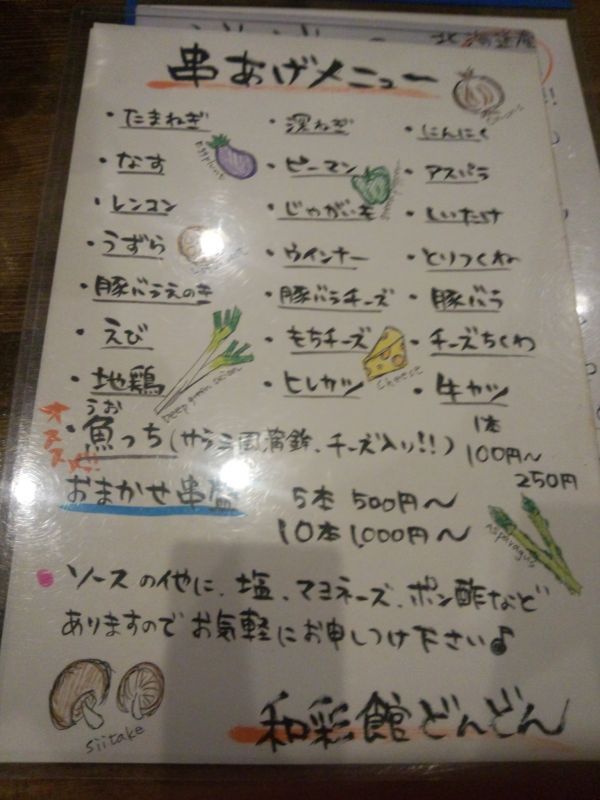 北海道産
串あげメニュー
・たまねぎ ・深ねぎ ・にんにく
Eggplant
・なす ・ピーマン ・アスパラ
・レンコン ・じゃがいも ・しいたけ
・うずら ・ウインナー ・とりつくね
・豚バラえのき ・豚バラチーズ ・豚バラ
・えび ・もちチーズ ・チーズちくわ
Cheese
・地鶏 ・ヒレカツ ・牛カツ
Deep green onion
オススメ!!
うお
・魚っち(サラミ風蒲鉾、チーズ入り!!)
1本
100円〜
250円
おまかせ串盛 5本 500円〜
10本 1,000円〜
Asparagus
ソースの他に、塩、マヨネーズ、ポン酢など
ありますので お気軽にお申しつけ下さい♪
siitake
和彩館どんどん